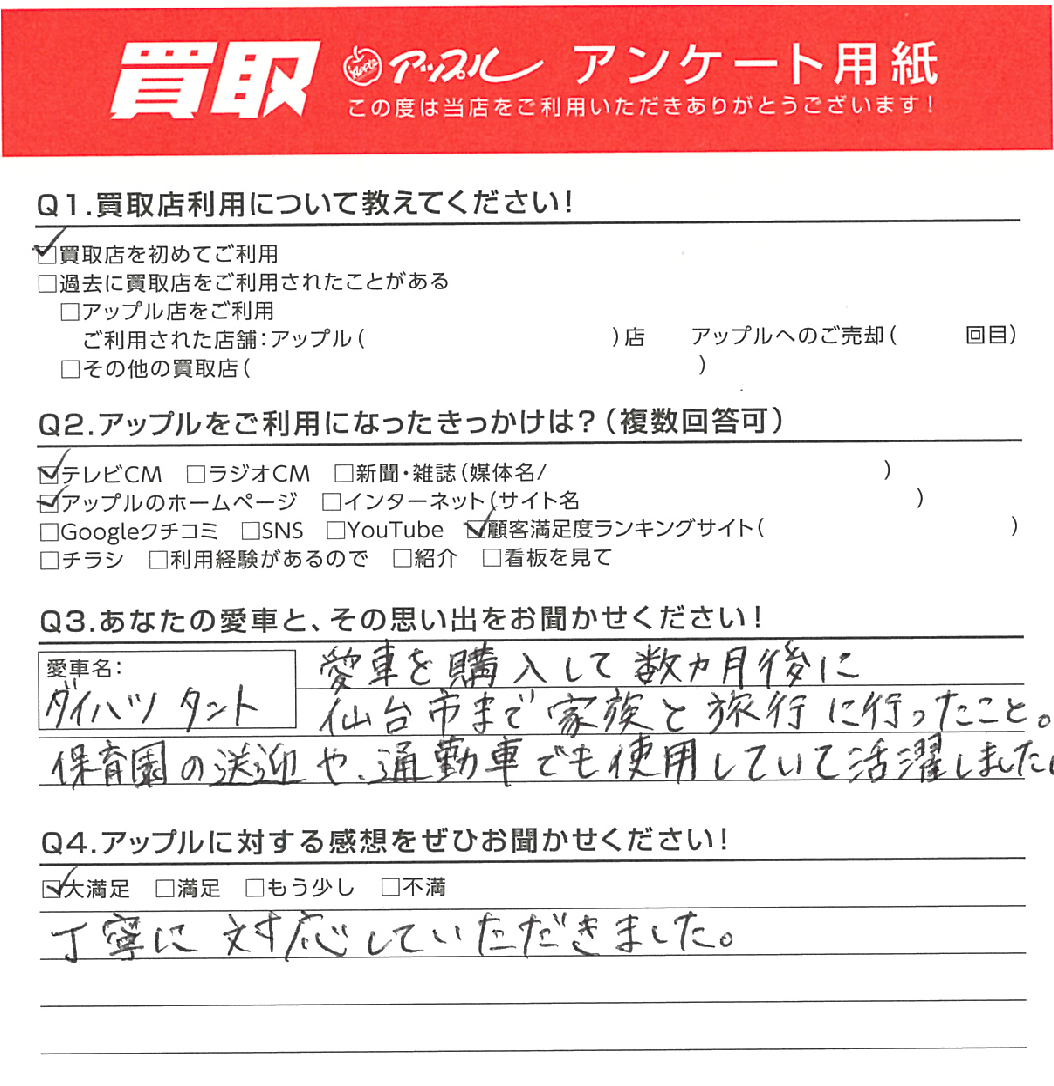 買取 アップル アンケート用紙
この度は当店をご利用いただきありがとうございます!
Q1.買取店利用について教えてください!
☑買取店を初めてご利用
□過去に買取店をご利用されたことがある
□アップル店をご利用
ご利用された店舗:アップル( )店 アップルへのご売却( 回目)
□その他の買取店( )
Q2.アップルをご利用になったきっかけは?(複数回答可)
☑テレビCM □ラジオCM □新聞・雑誌(媒体名/ )
☑アップルのホームページ □インターネット(サイト名 )
□Googleクチコミ □SNS □YouTube ☑顧客満足度ランキングサイト( )
□チラシ □利用経験があるので □紹介 □看板を見て
Q3.あなたの愛車と、その思い出をお聞かせください!
愛車名:
ダイハツ タント
愛車を購入して数ヵ月後に
仙台市まで家族と旅行に行ったこと。
保育園の送迎や、通勤車でも使用していて活濯しました
Q4.アップルに対する感想をぜひお聞かせください!
☑大満足 □満足 □もう少し □不満
丁寧に対応していただきました。